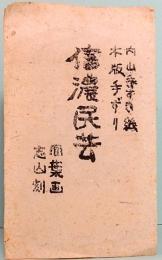 内山手すき紙
木版手ずり
信濃民芸
版画
志山刻